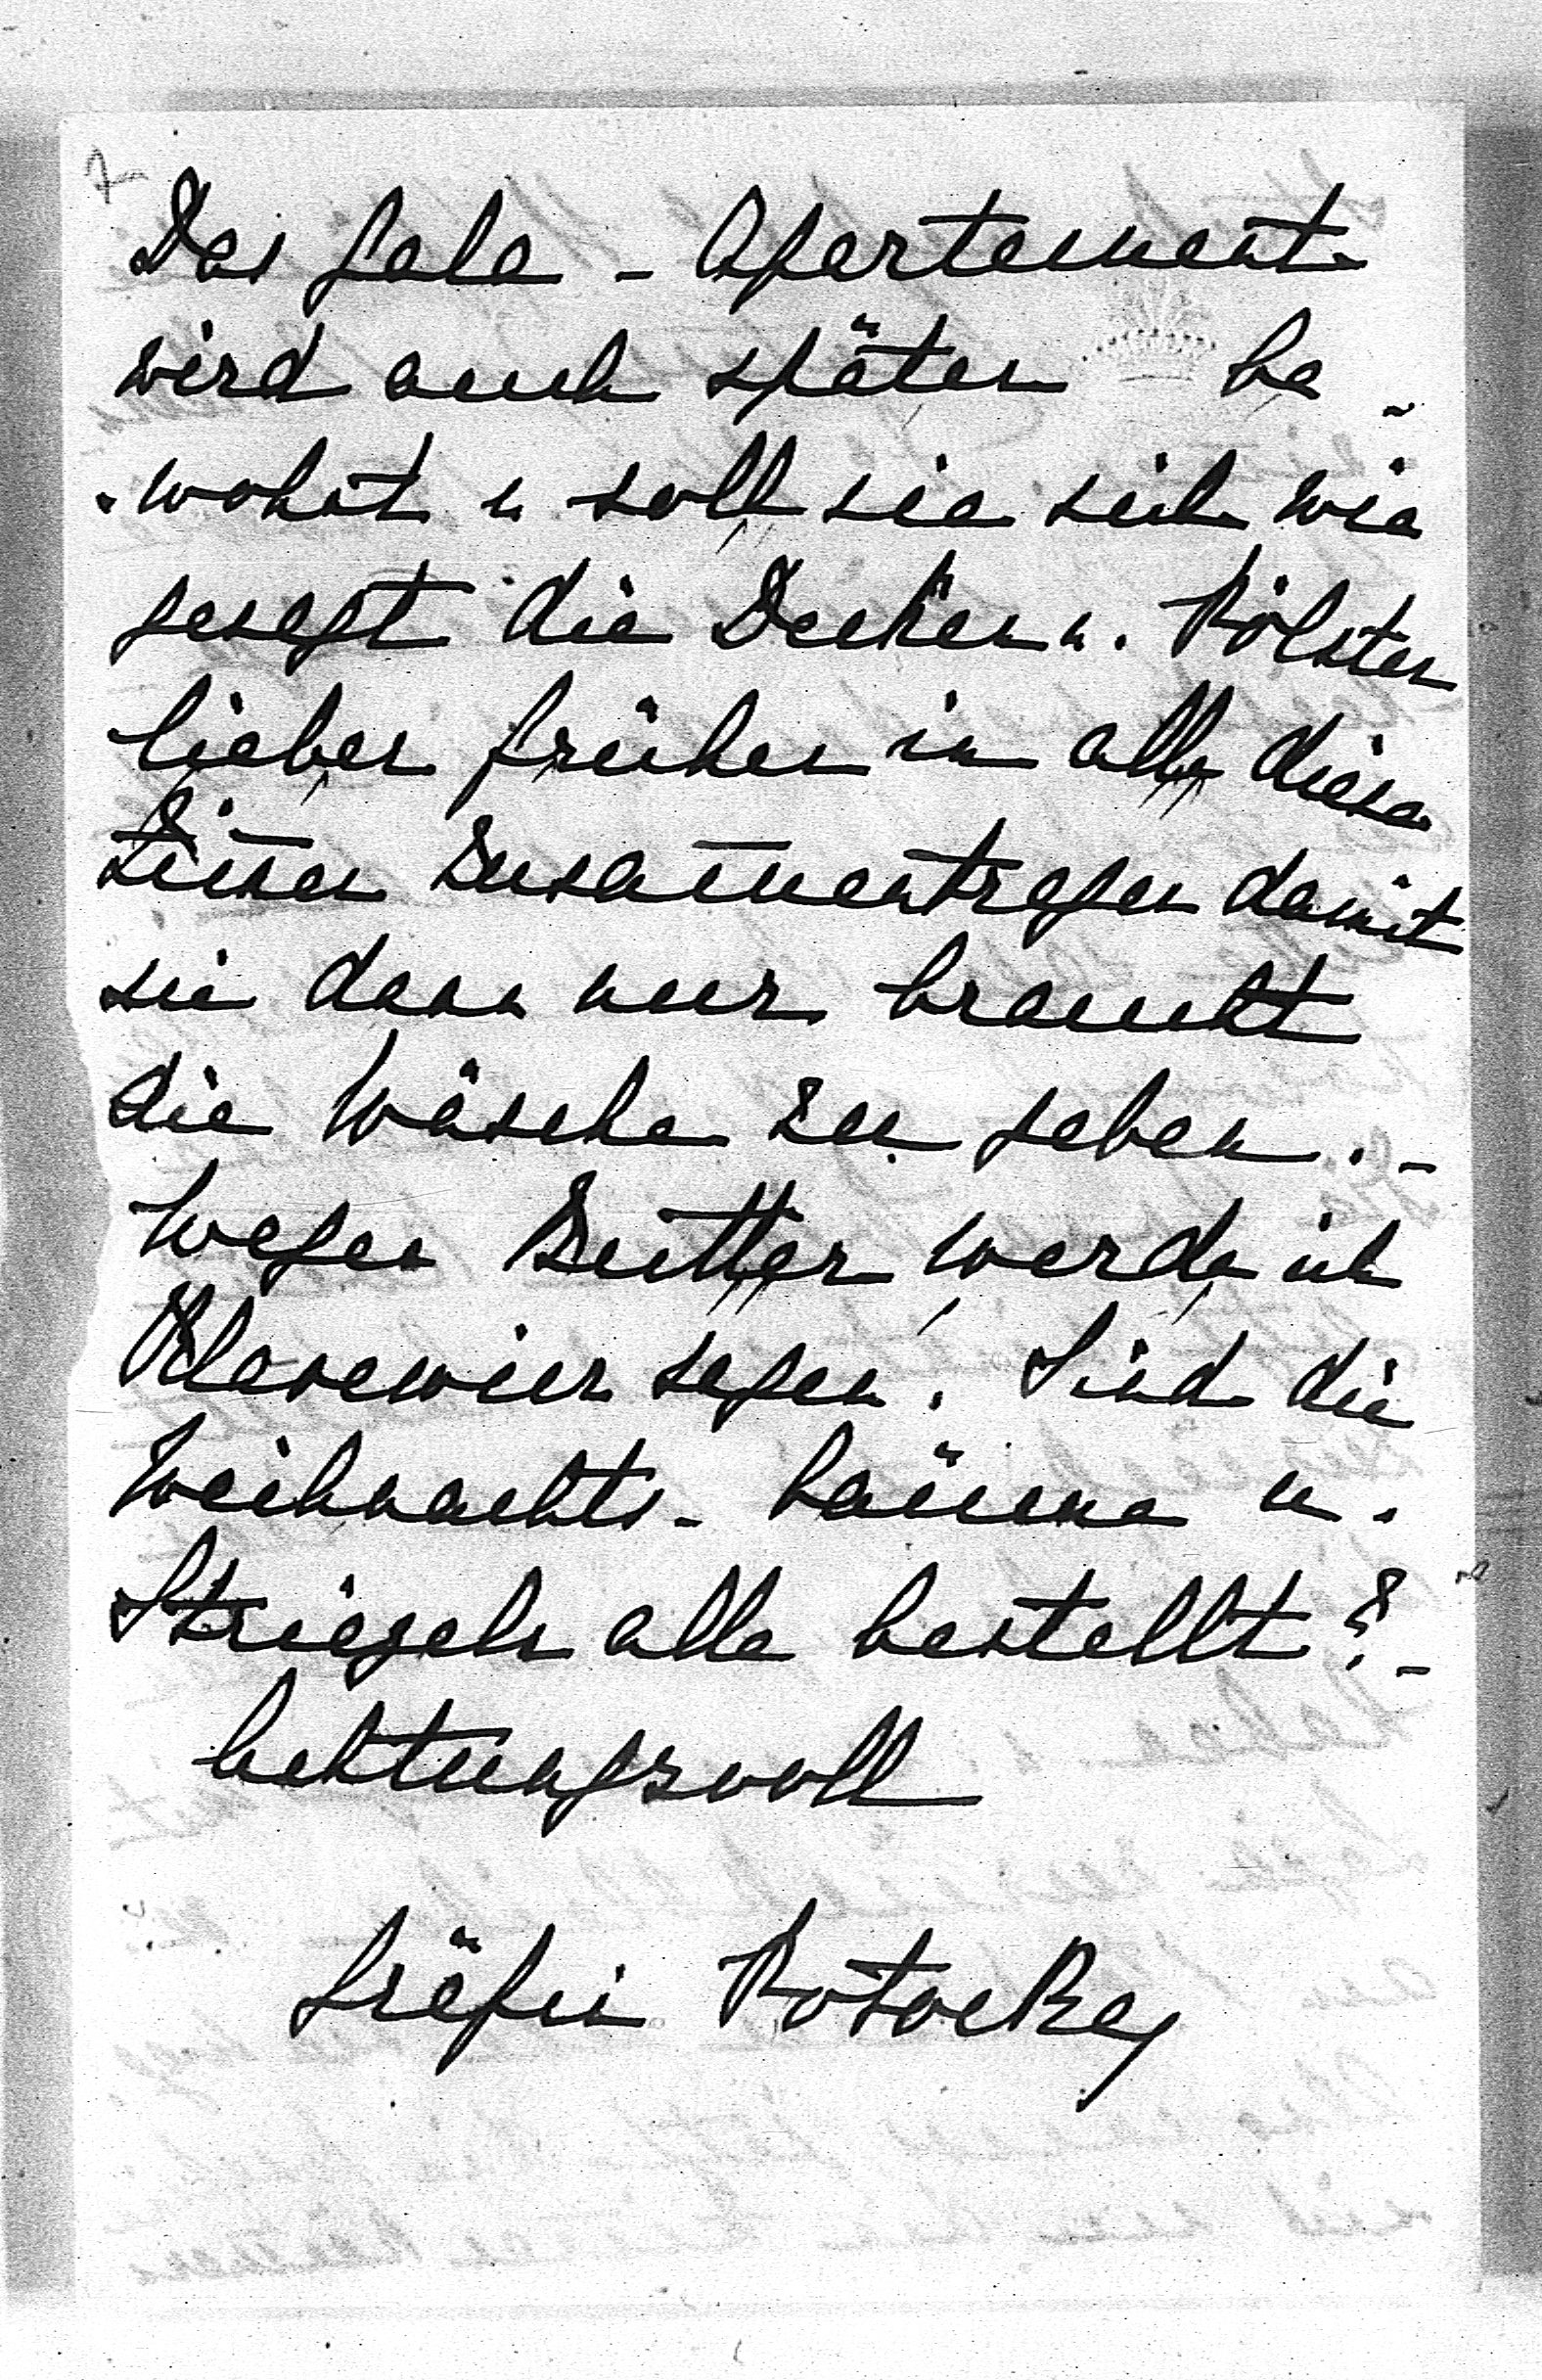 7
Das Gala - Apartement
wird auch später be-
-wohnt u soll sie sich wie
gesagt die Decken u. Pölster
lieber früher in alle diese
Zim̄er Zusam̄entragen damit
sie dann nur braucht
die Wäsche zu geben. -
Wegen Butter werde ich
sagen. Sind die
Weihnachts- bäume u.
Striezeln alle bestellt? -
Achtungsvoll
Gräfin Potocka